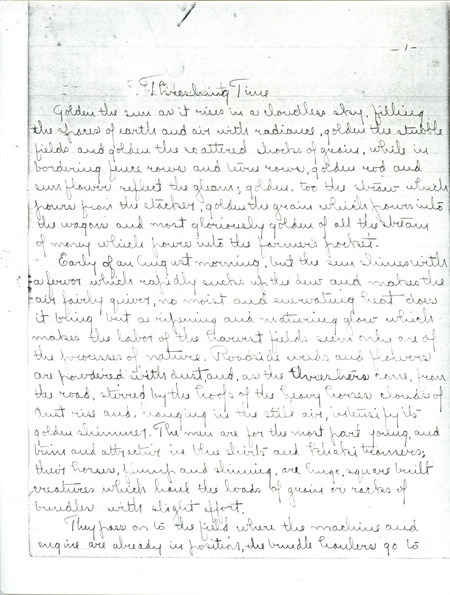 -1-
Threshing Time
Golden the sun as it rises in a cloudless sky, filling
the spaces of earth and air with radiance, golden the stubble
fields and golden the scattered shocks of grain, while in
bordering fence rows and wire rows, golden rod and
sun flower reflect the gleam; golden, too the straw which
pours from the stacker, golden the grain which pours into
the wagons and most gloriously golden of all the stream
of money which pours into the farmer's pocket.
Early of an August morning, but the sun shines with
a fervor which rapidly sucks up the dew and makes the
air fairly quiver, no moist and enervating heat does
it bring but a ripening and maturing glow which
makes the labor of the harvest fields seem only one of
the processes of nature. Roadside weeds and flowers
are powdered with dust, and, as the threshers come, from
the road, stirred by the hoofs of the heavy horses clouds of
dust rise and, hanging in the still air, intensify its
golden shimmer. The men are for the most part young, and
trim and attractive in blue shirts and khaki trousers;
their horses, plump and shining, are huge, square built
creatures which haul the loads of grain or racks of
bundles with slight effort.
They pass on to the field where the machine and
engine are already in position, the bundle haulers go to